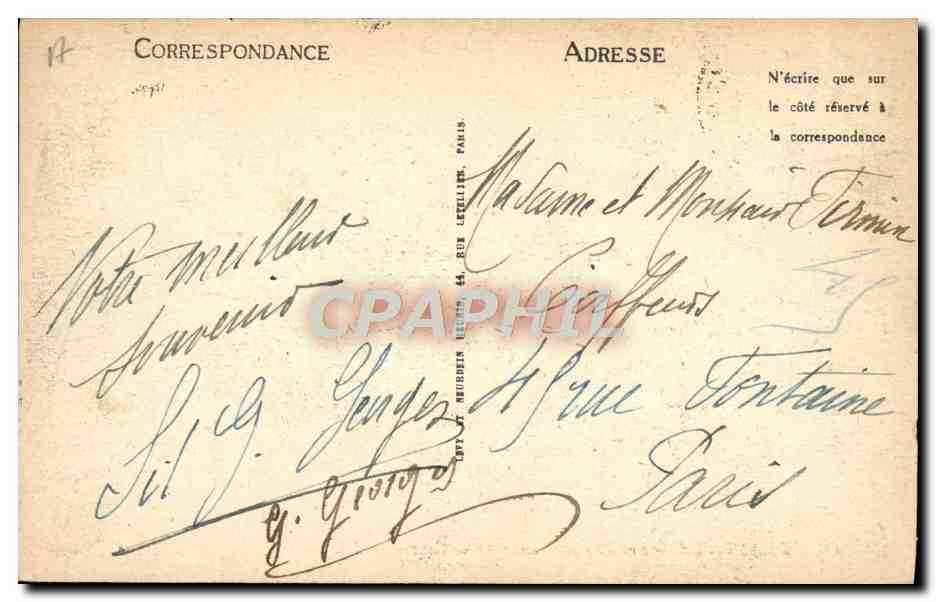 CORRESPONDANCE
Votre meilleur
souvenir
G. Georges
G. Georges
LEVY ET NEURDEIN REUNIS, 44, RUE LETELLIER, PARIS.
ADRESSE
N'écrire que sur
le côté réservé à
la correspondance
Madame et Monsieur Firmin
Coiffeurs
45 rue Fontaine
Paris
45
CPAPHIL